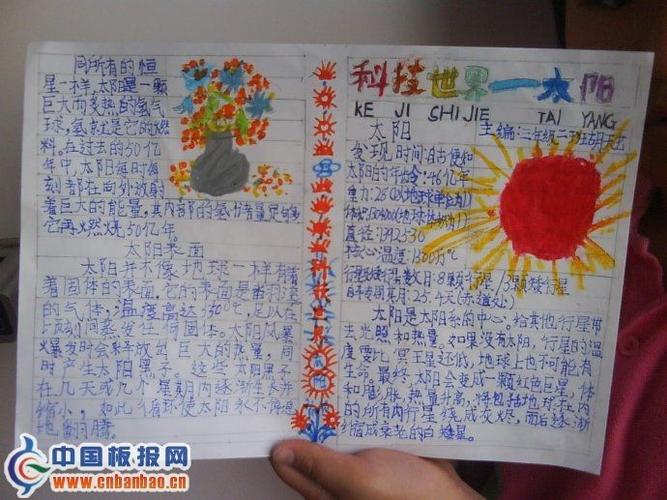 同所有的恒
星一样,太阳是一颗
巨大而多热的氢气
球,氢就是它的燃
料。在过去的50亿
年中,太阳每时每
刻都在向外放射
着巨大的能量,其内部的氢
它再燃烧50亿年。
太阳表面
太阳并不像地球一样有着
着固体的表面,它的表面是
的气体,温度高达 ℃,足以在
间蒸发任何固体。太阳风暴
爆发时会释放出巨大的热量,同
时产生太阳黑子。这些太阳黑子
在几天或几个星期内逐渐生长并
缩小,如此循环使太阳永不停息
地翻腾。
科技世界一太阳
KE JI SHI JIE TAI YANG
太阳
主编:三年级二班
发现时间:自古便知
太阳的年龄:46亿年
直径:1392530
核心温度:1300万℃
行星数目:8颗行星
自转周期:25.4天(赤道处)
太阳是太阳系的中心。给其他行星带
去光照和热量。如果没有太阳,行星的温
度要比冥王星还低,地球上也不可能有
生命。最终,太阳会变成一颗红色巨星,体
积膨胀,热量升高,将包括地球在内
的所有内行星烧成灰烬,而后逐渐
缩成衰老的白矮星。
中国板报网
www.cnbanbao.cn